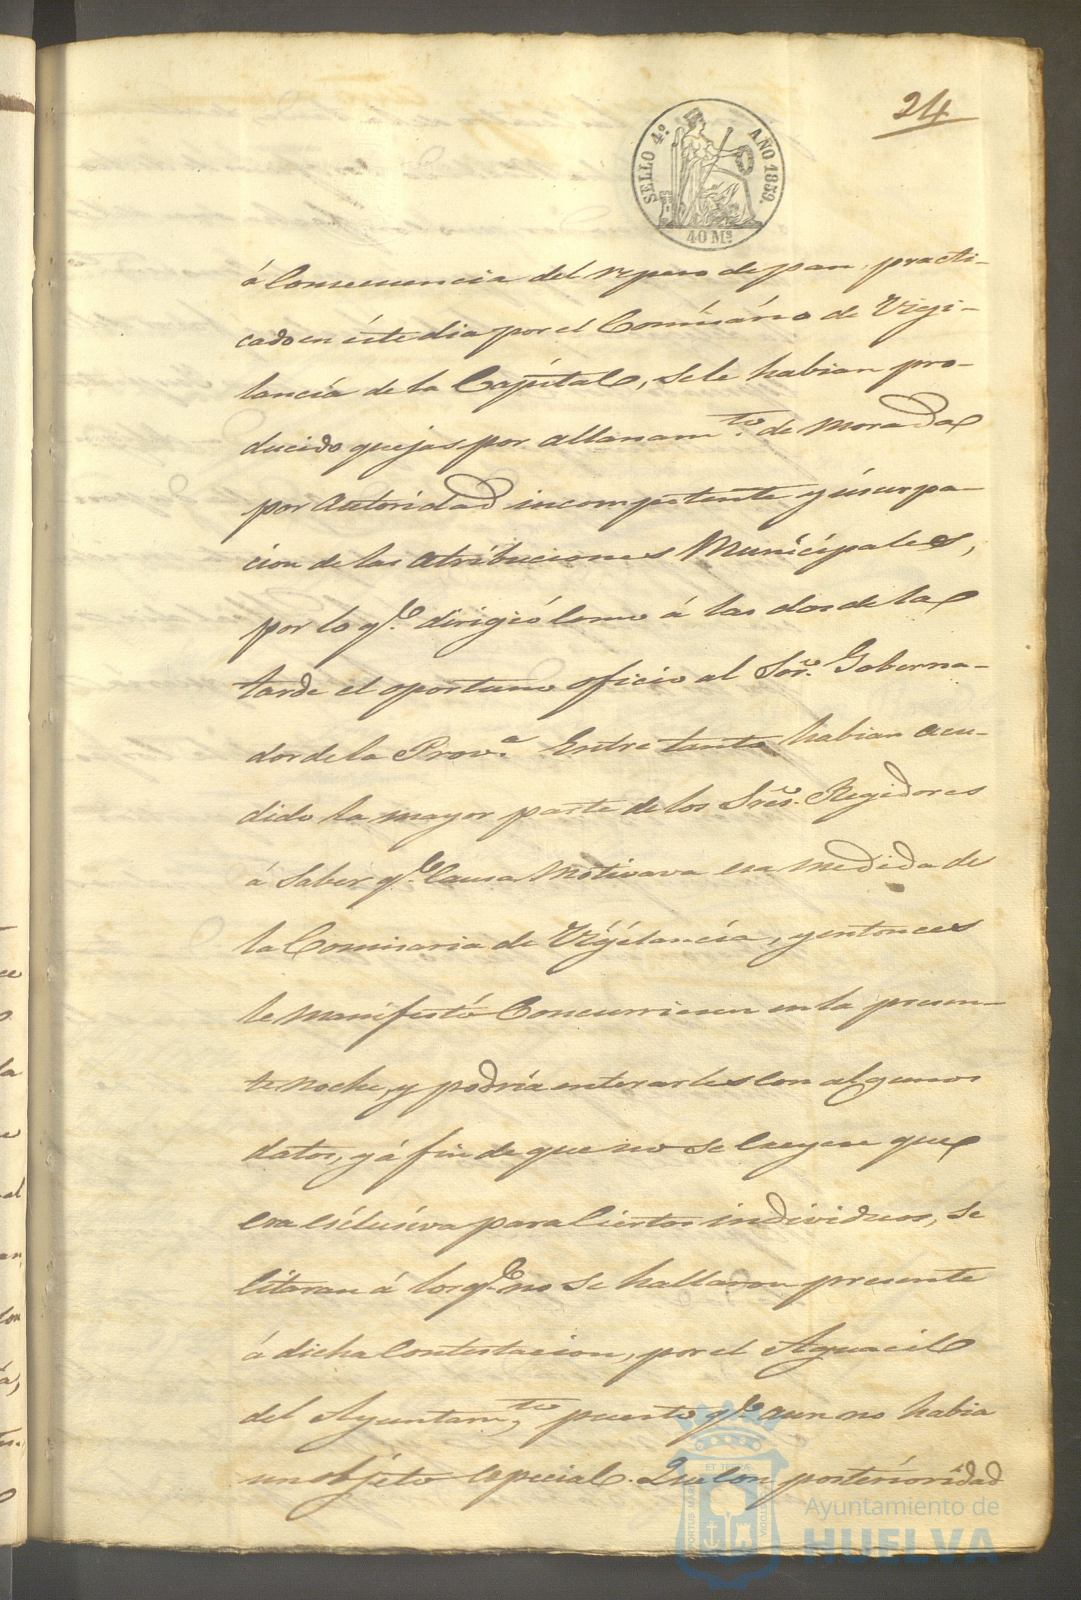 24
SELLO 4.º AÑO 1859.
40 Ms
á consecuencia del repeso de pan, practi-
cado en éste dia por el Comisário de Viji-
lancia de la Capital, se le habian pro-
ducido quejas por allanam.to de morada
por autoridad incompetente y úsurpa-
cion de las atribuciones Municipales,
por lo q.e dirigió como á las dos de la
tarde el oportuno oficio al Sor. Goberna-
dor de la Prov.a Entre tanto habian acu-
dido la mayor parte de los Sres. Regidores
á saber q.e causa motivava esa medida de
la Comisaria de Vigilancia, y entonces
le manifestó concurriesen en la presen-
te noche, y podria enterarles con algunos
datos, y á fin de que no se creyese que
era esclusiva para ciertos individuos, se
citaran á los q.e no se hallaron presente
á dicha contestacion, por el Aguacil
del Ayuntam.to, puesto q.e aun no habia
un objeto especial. Que con posterioridad
Ayuntamiento de
HUELVA